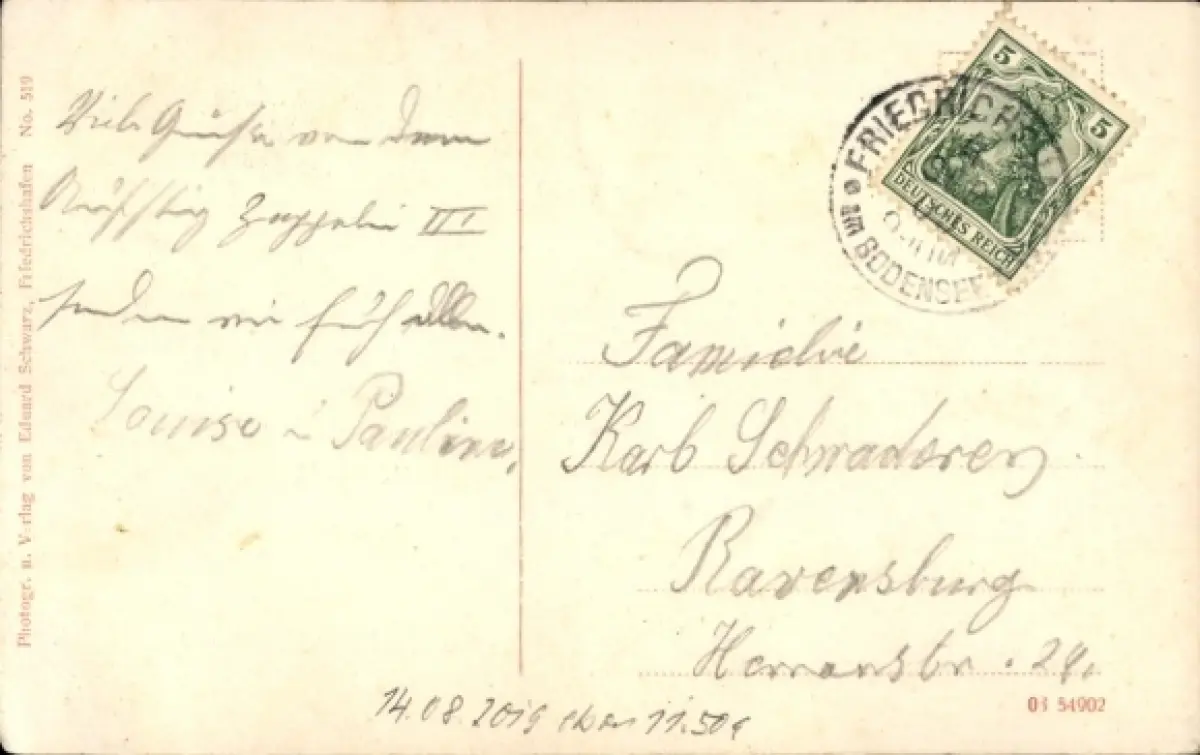 Photogr. u. Verlag von Eduard Schwarz, Friedrichshafen No. 519
Viele Grüße von dem
Luftschiff Zeppelin III
senden wir Euch allen.
Louise u Pauline.
5 5
DEUTSCHES REICH
FRIEDRICHSHAFEN
im BODENSEE
Familie
Karl Schwaderer
Ravensburg
Herrenstr. 24.
03 54902
14.08.2019 11.50€